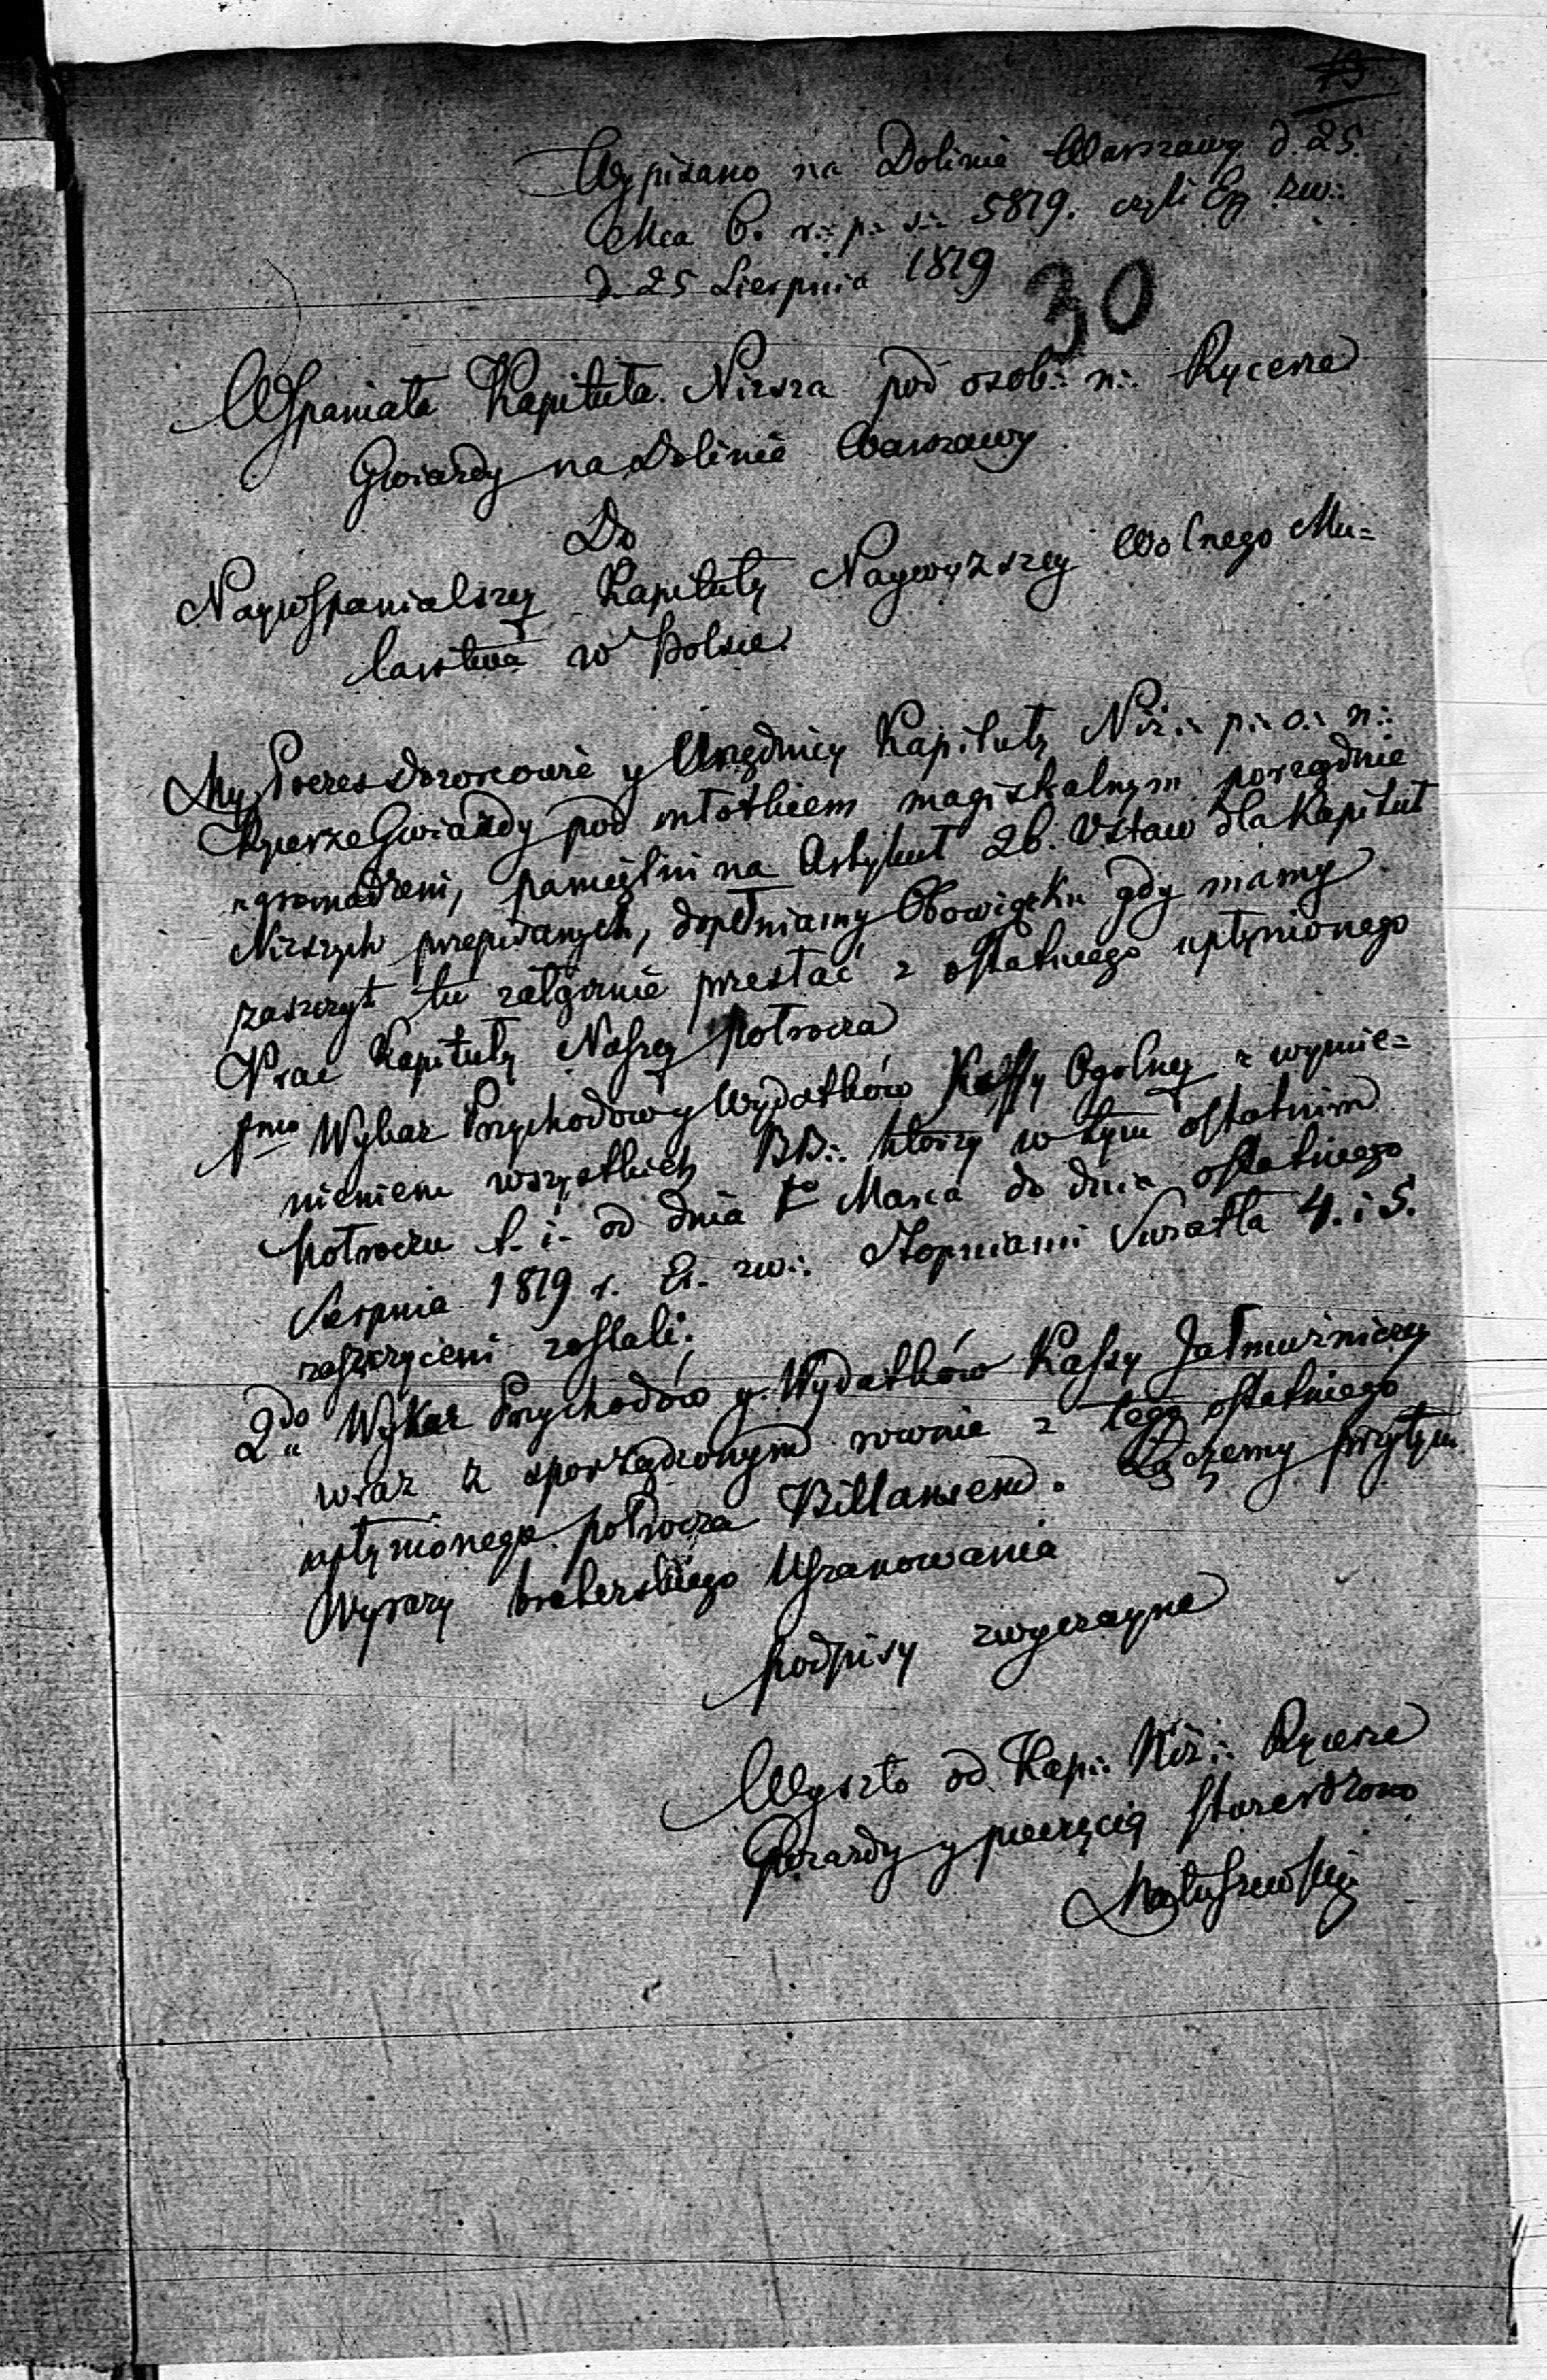 Wypisano na Dolinie Warszawy d. 25.
Mca 6. r∴ p∴ s∴ 5819. czyli Ey zw∴
d. 25 Sierpnia 1819
30
Wspaniała Kapituła Nizsza pod osob∴ n∴ Rycerze
Gwiazdy na Dolinie Warszawy
Do
Naywspanialszey Kapituły Naywyzszey Wolnego Mu=
larstwa w Polsce
My, Przez Dozorcowie y Urzędnicy Kapituły Niż∴ p∴ o∴ n∴
Rycerze Gwiazdy pod młotkiem magistralnym porządnie
zgromadzeni, pamiętni na Artykuł 26. Ustaw dla Kapituł
Nizszych przepisanych, dopełniamy Obowiązku gdy mamy
zaszczyt tu załącznie przesłać z ostatniego upłynionego
Prac Kapituły Naszey połrocza
1mo Wykaz Przychodow y Wydatków Kassy Ogolney z wymie=
nieniem wszystkich BB∴ ktorzy w tym ostatnim
połroczu t. i. od dnia 1o Marca do dnia ostatniego
Sierpnia 1819 r. E. zw∴ Stopniami Swiatła 4. i 5.
zaszczyceni zostali.
2do Wykaz Przychodów y Wydatków Kassy Jałmużniczey
wraz z sporządzonym rownie z tego ostatniego
upłynionego połrocza Billansem. Łączemy przytym
Wyrazy braterskiego Uszanowania
podpisy zwyczayne
Wyszło od Kapi∴ Niż∴ Rycerze
Gwiazdy y pieczęcią stwierdzono
Matuszewski